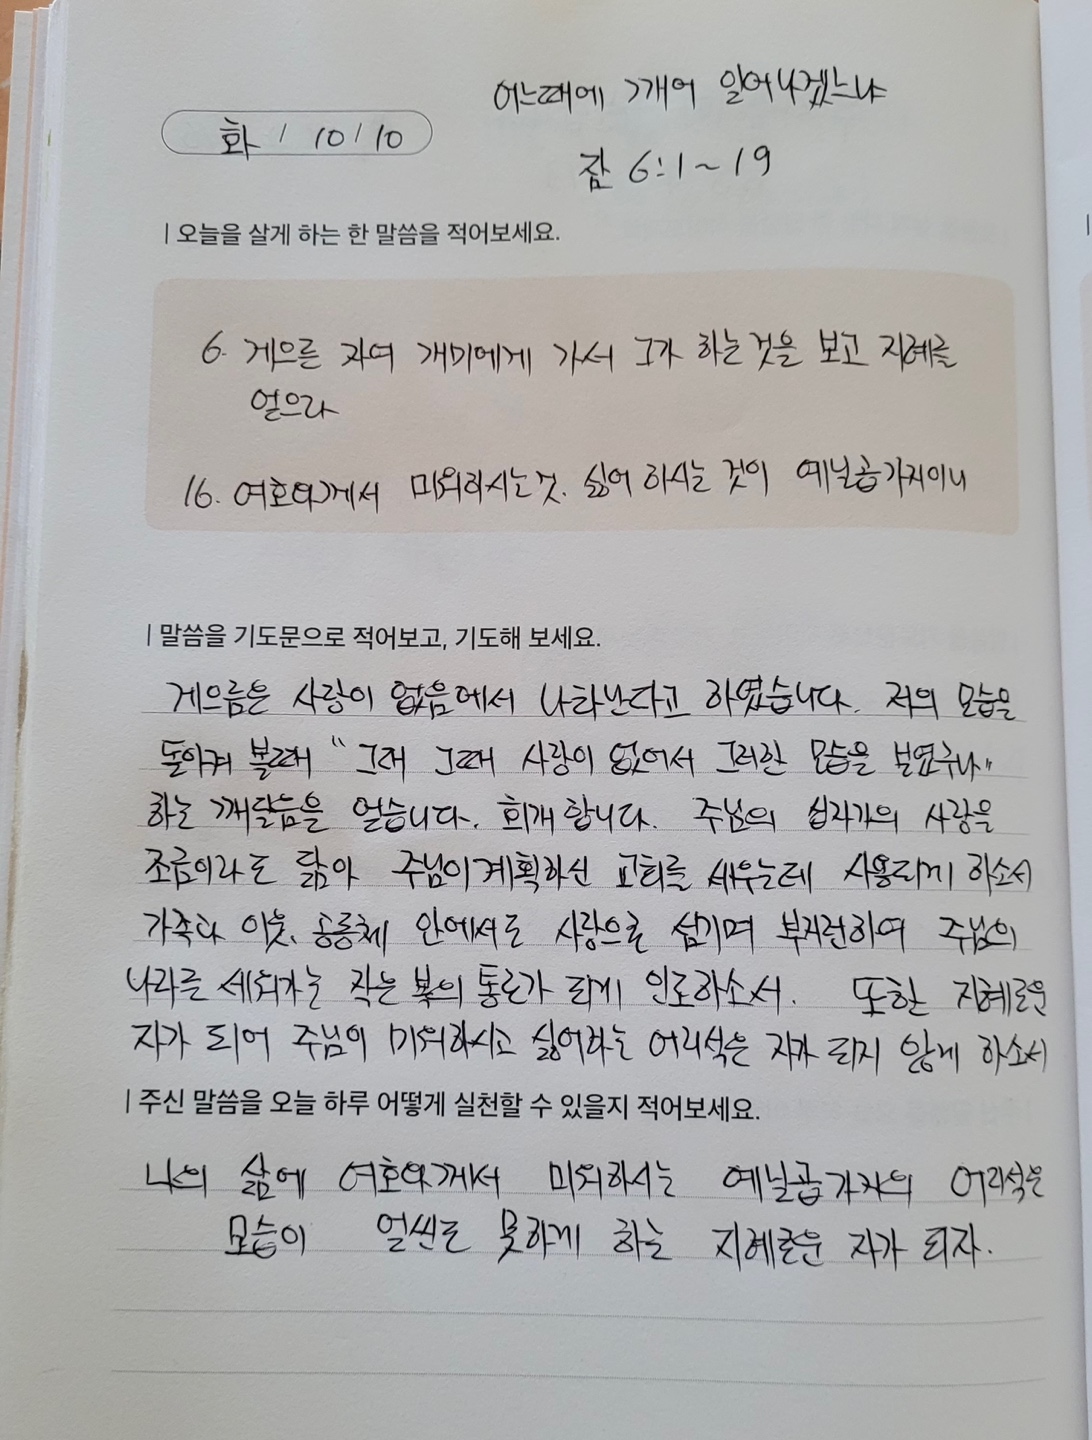 어느때에 깨어 일어나겠느냐
화 / 10 / 10
잠 6:1~19
| 오늘을 살게 하는 한 말씀을 적어보세요.
6. 게으른 자여 개미에게 가서 그가 하는것을 보고 지혜를
얻으라
16. 여호와께서 미워하시는것. 싫어 하시는 것이 예닐곱가지이니
| 말씀을 기도문으로 적어보고, 기도해 보세요.
게으름은 사랑이 없음에서 나타난다고 하였습니다. 저의 모습을
돌이켜 볼때 "그때 그때 사랑이 없어서 그러한 모습을 보였구나"
하는 깨달음을 얻습니다. 회개 합니다. 주님의 십자가의 사랑을
조금이라도 닮아 주님이 계획하신 교회를 세우는데 사용되게 하소서
가족과 이웃, 공동체 안에서도 사랑으로 섬기며 부지런하여 주님의
나라를 세워가는 작은 복의 통로가 되게 인도하소서. 또한 지혜로운
자가 되어 주님이 미워하시고 싫어하는 어리석은 자가 되지 않게 하소서
| 주신 말씀을 오늘 하루 어떻게 실천할 수 있을지 적어보세요.
나의 삶에 여호와께서 미워하시는 예닐곱가지의 어리석은
모습이 얼씬도 못하게 하는 지혜로운 자가 되자.